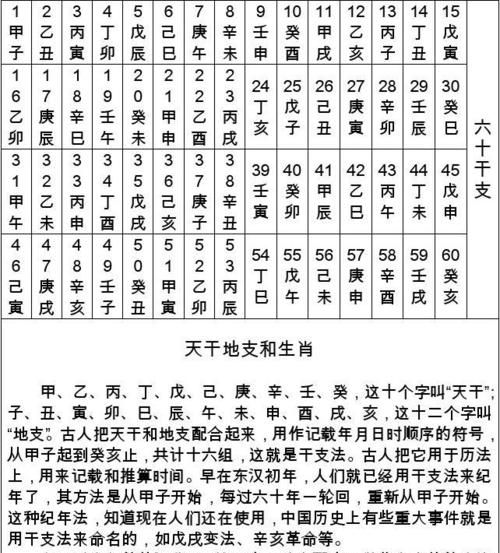 1 2 3 4 5 6 7 8 9 10 11 12 13 14 15
甲子 乙丑 丙寅 丁卯 戊辰 己巳 庚午 辛未 壬申 癸酉 甲戌 乙亥 丙子 丁丑 戊寅
16 17 18 19 20 21 22 23 24 25 26 27 28 29 30
乙卯 庚辰 辛巳 壬午 癸未 甲申 乙酉 丙戌 丁亥 戊子 己丑 庚寅 辛卯 壬辰 癸巳
31 32 33 34 35 36 37 38 39 40 41 42 43 44 45
甲午 乙未 丙申 丁酉 戊戌 己亥 庚子 辛丑 壬寅 癸卯 甲辰 乙巳 丙午 丁未 戊申
46 47 48 49 50 51 52 53 54 55 56 57 58 59 60
己寅 庚戌 辛亥 壬子 癸丑 甲寅 乙卯 丙辰 丁巳 戊午 己未 庚申 辛酉 壬戌 癸亥
六十干支
天干地支和生肖
甲、乙、丙、丁、戊、己、庚、辛、壬、癸，这十个字叫“天干”;
子、丑、寅、卯、巳、辰、午、未、申、酉、戌、亥，这十二个字叫
“地支”。古人把天干和地支配合起来，用作记载年月日时顺序的符号，
从甲子起到癸亥止，共计十六组，这就是干支法。古人把它用于历法
上，用来记载和推算时间。早在东汉初年，人们就已经用干支法来纪
年了，其方法是从甲子开始，每过六十年一轮回，重新从甲子开始。
这种纪年法，知道现在人们还在使用，中国历史上有些重大事件就是
用干支法来命名的，如戊戌变法、辛亥革命等。